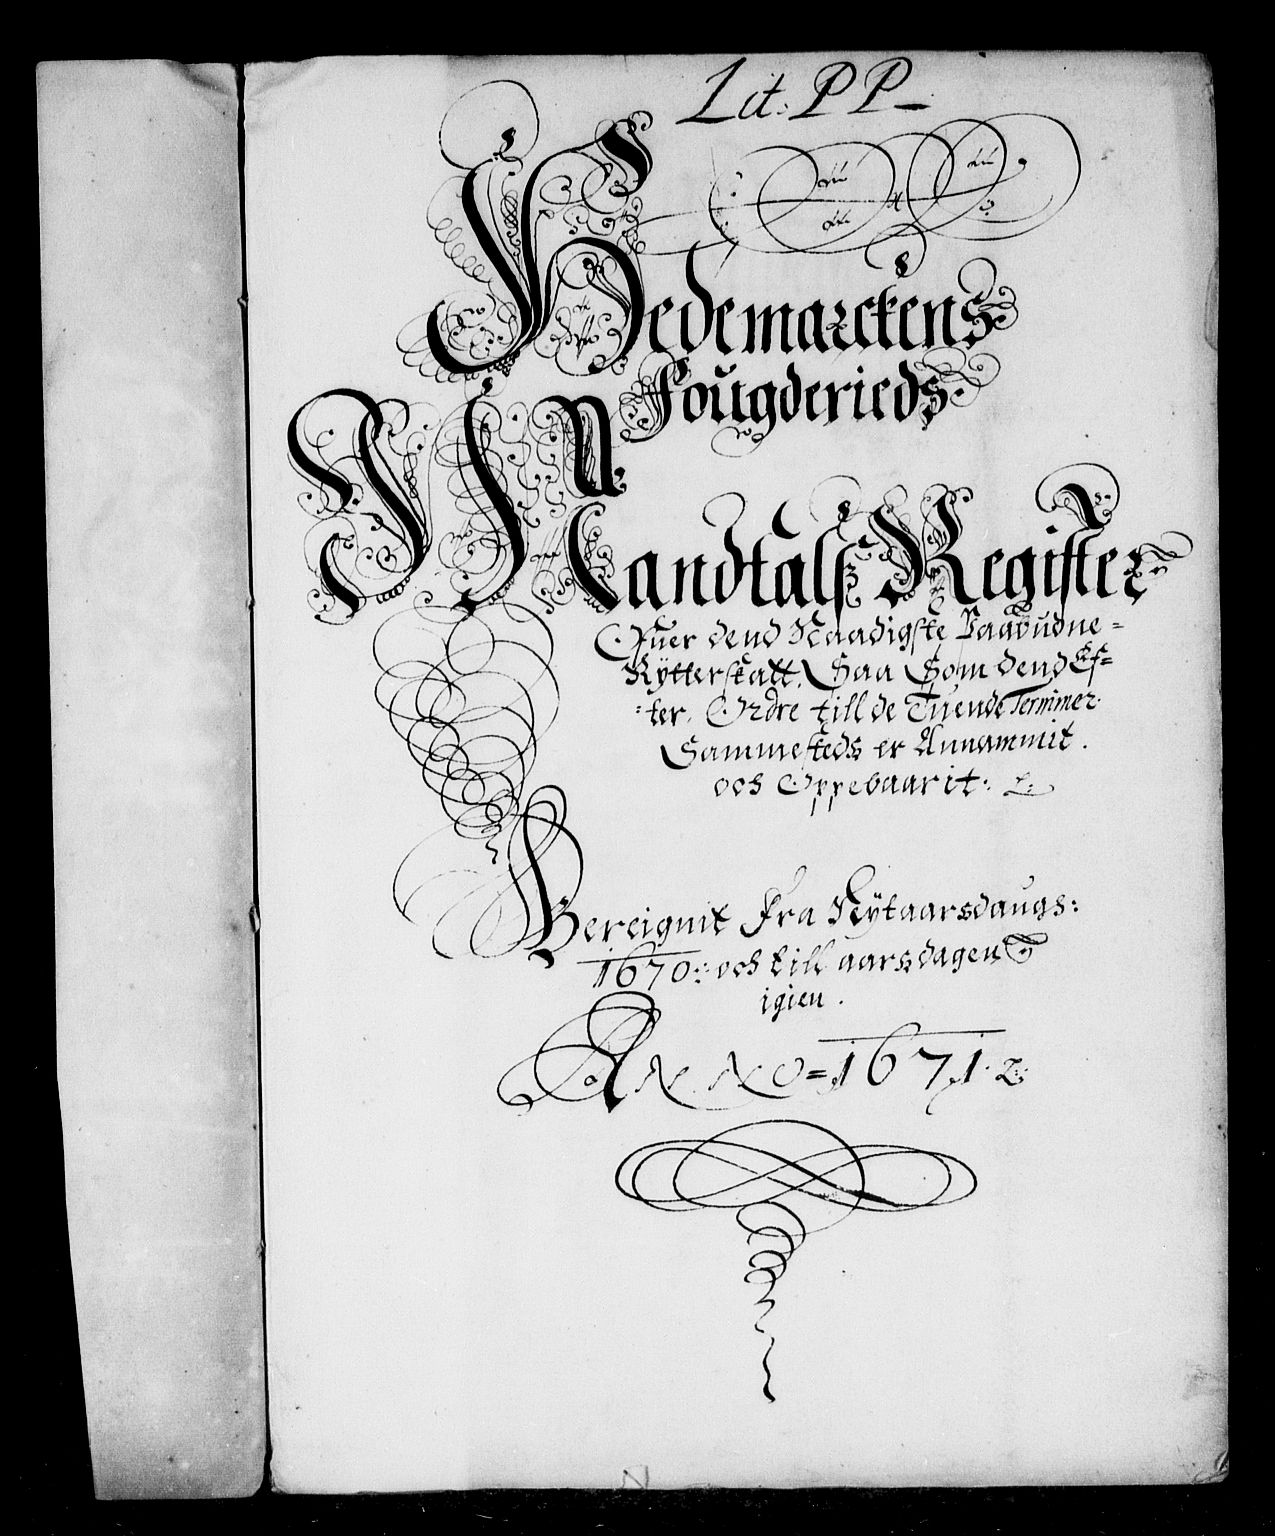 Lit: PP
Hedemarckens
Fougderieds
Mandtalsz Register
Ofuer dend Naadigste Paabudne=
Rytterskatt, Saa Som dend Ef=
=ter Ordre till de Tuende Terminer
Sammesteds er Annammit.
och Oppebaarit:
Bereignit Fra Nytaarsdaugs:
1670: och till aarsdagen
igien.
ANNO=1671.